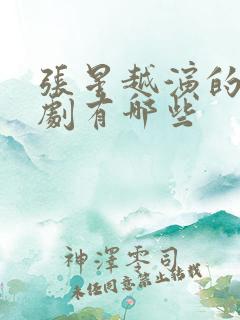 張星越演的
劇有哪些
神澤零司
未經同意禁止結載